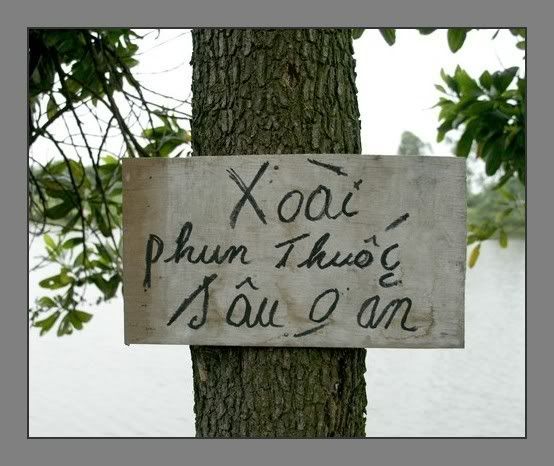 Xoài
phun Thuốc
Sâu O ăn